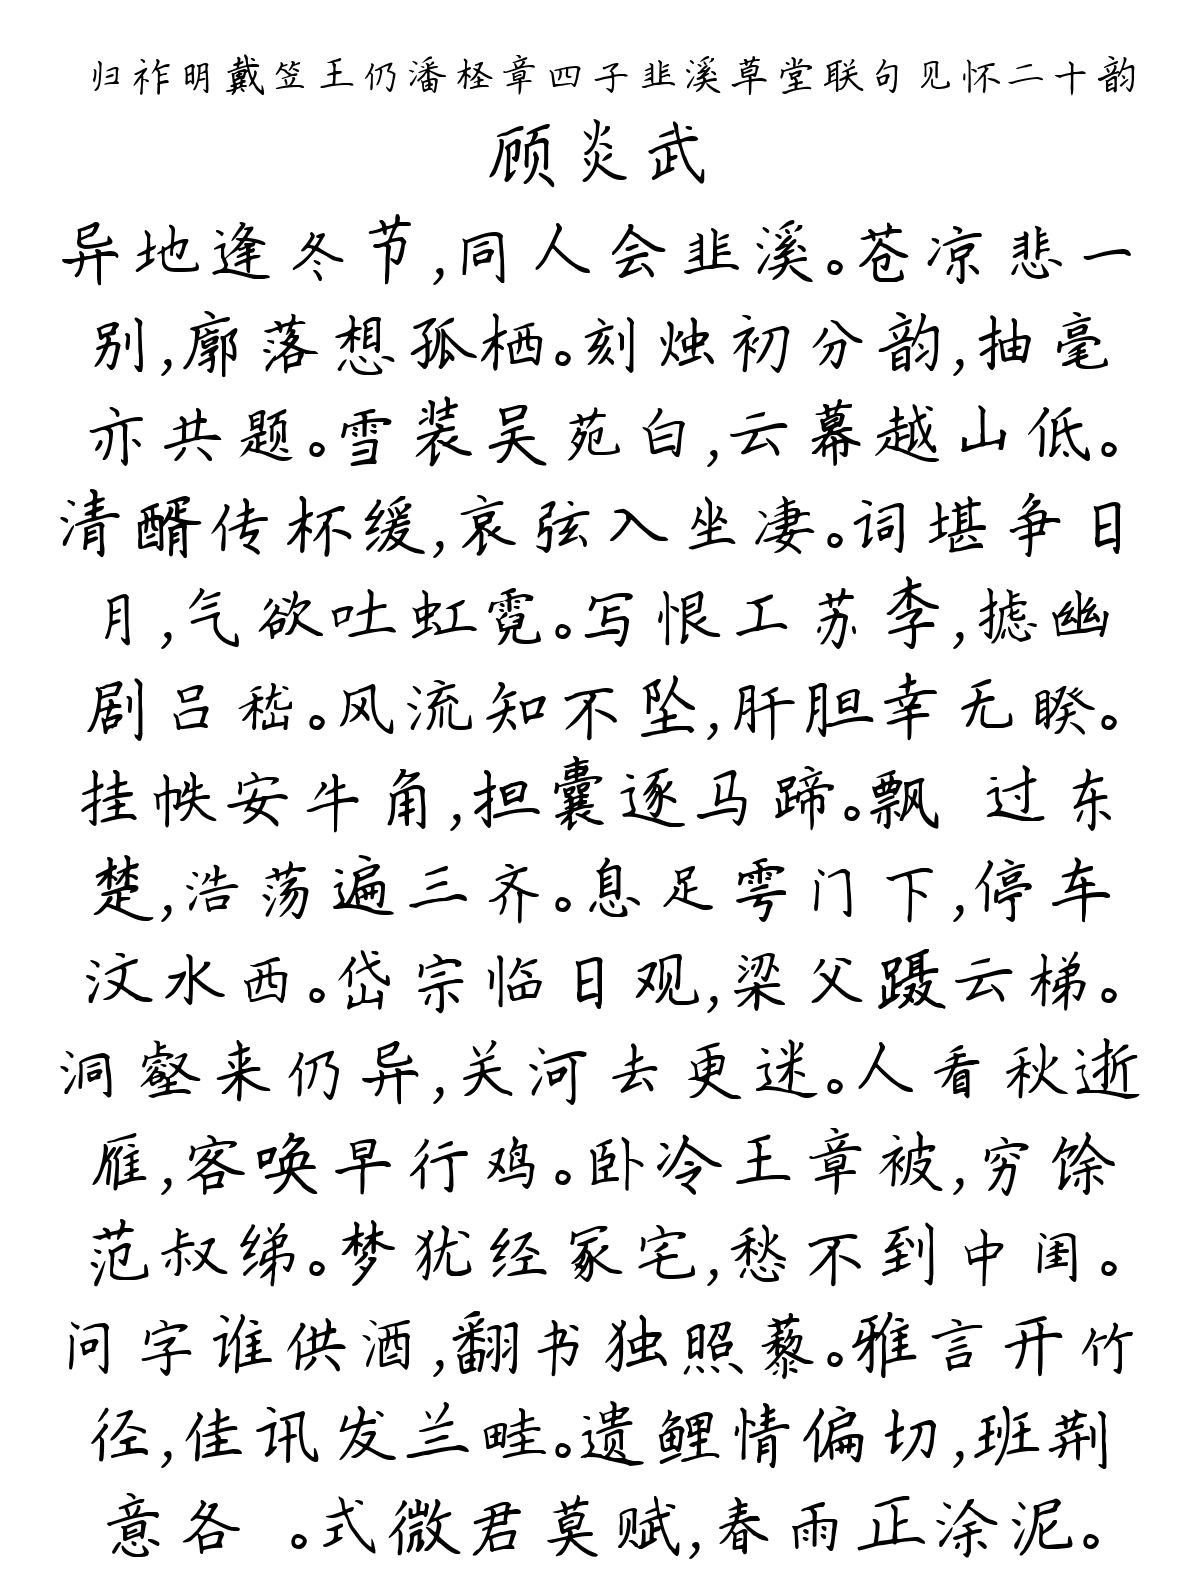 归祚明戴笠王仍潘柽章四子韭溪草堂联句见怀二十韵
顾炎武
异地逢冬节,同人会韭溪。苍凉悲一
别,廓落想孤栖。刻烛初分韵,抽毫
亦共题。雪装吴苑白,云幕越山低。
清醑传杯缓,哀弦入坐凄。词堪争日
月,气欲吐虹霓。写恨工苏李,摅幽
剧吕嵇。风流知不坠,肝胆幸无睽。
挂帙安牛角,担囊逐马蹄。飘 过东
楚,浩荡遍三齐。息足雩门下,停车
汶水西。岱宗临日观,梁父蹑云梯。
洞壑来仍异,关河去更迷。人看秋逝
雁,客唤早行鸡。卧冷王章被,穷馀
范叔绨。梦犹经冢宅,愁不到中闺。
问字谁供酒,翻书独照藜。雅言开竹
径,佳讯发兰畦。遗鲤情偏切,班荆
意各 。式微君莫赋,春雨正涂泥。